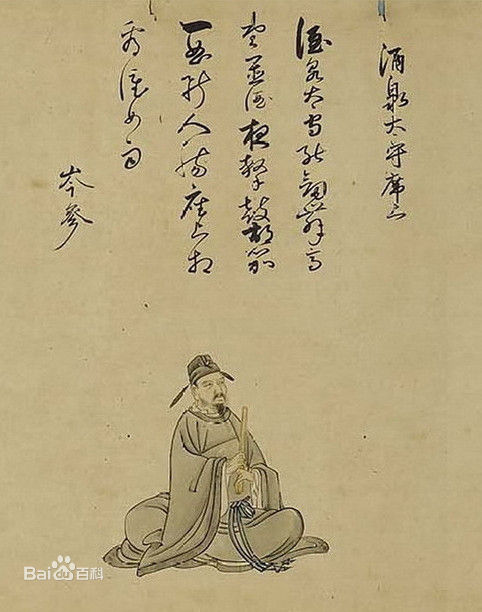 酒泉太守席上
酒泉太守能劔舞高
堂置酒夜擊鼓胡笳
一曲断人腸座上相
看淚如雨
岑參
Bai度百科